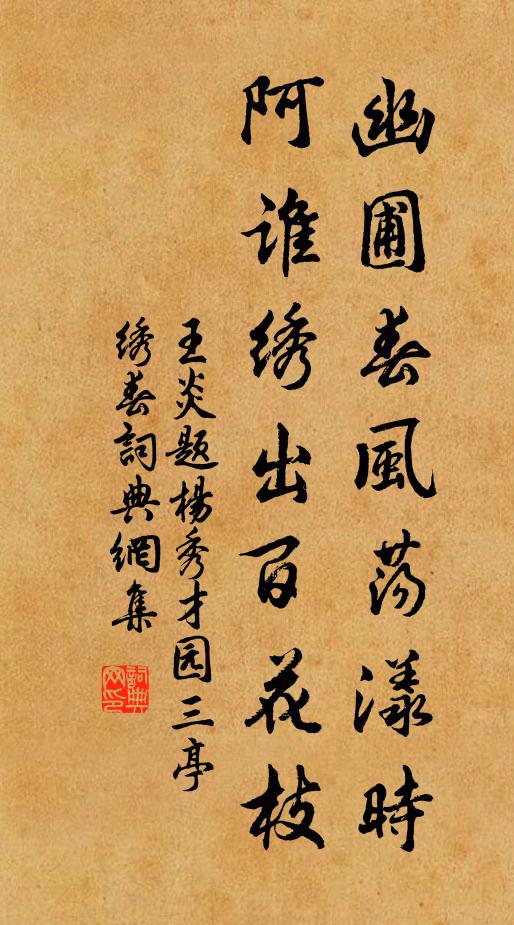 幽圃春風蕩漾時
阿誰绣出百花枝
王炎题楊秀才园三亭
绣春詞典網集
詞典网印